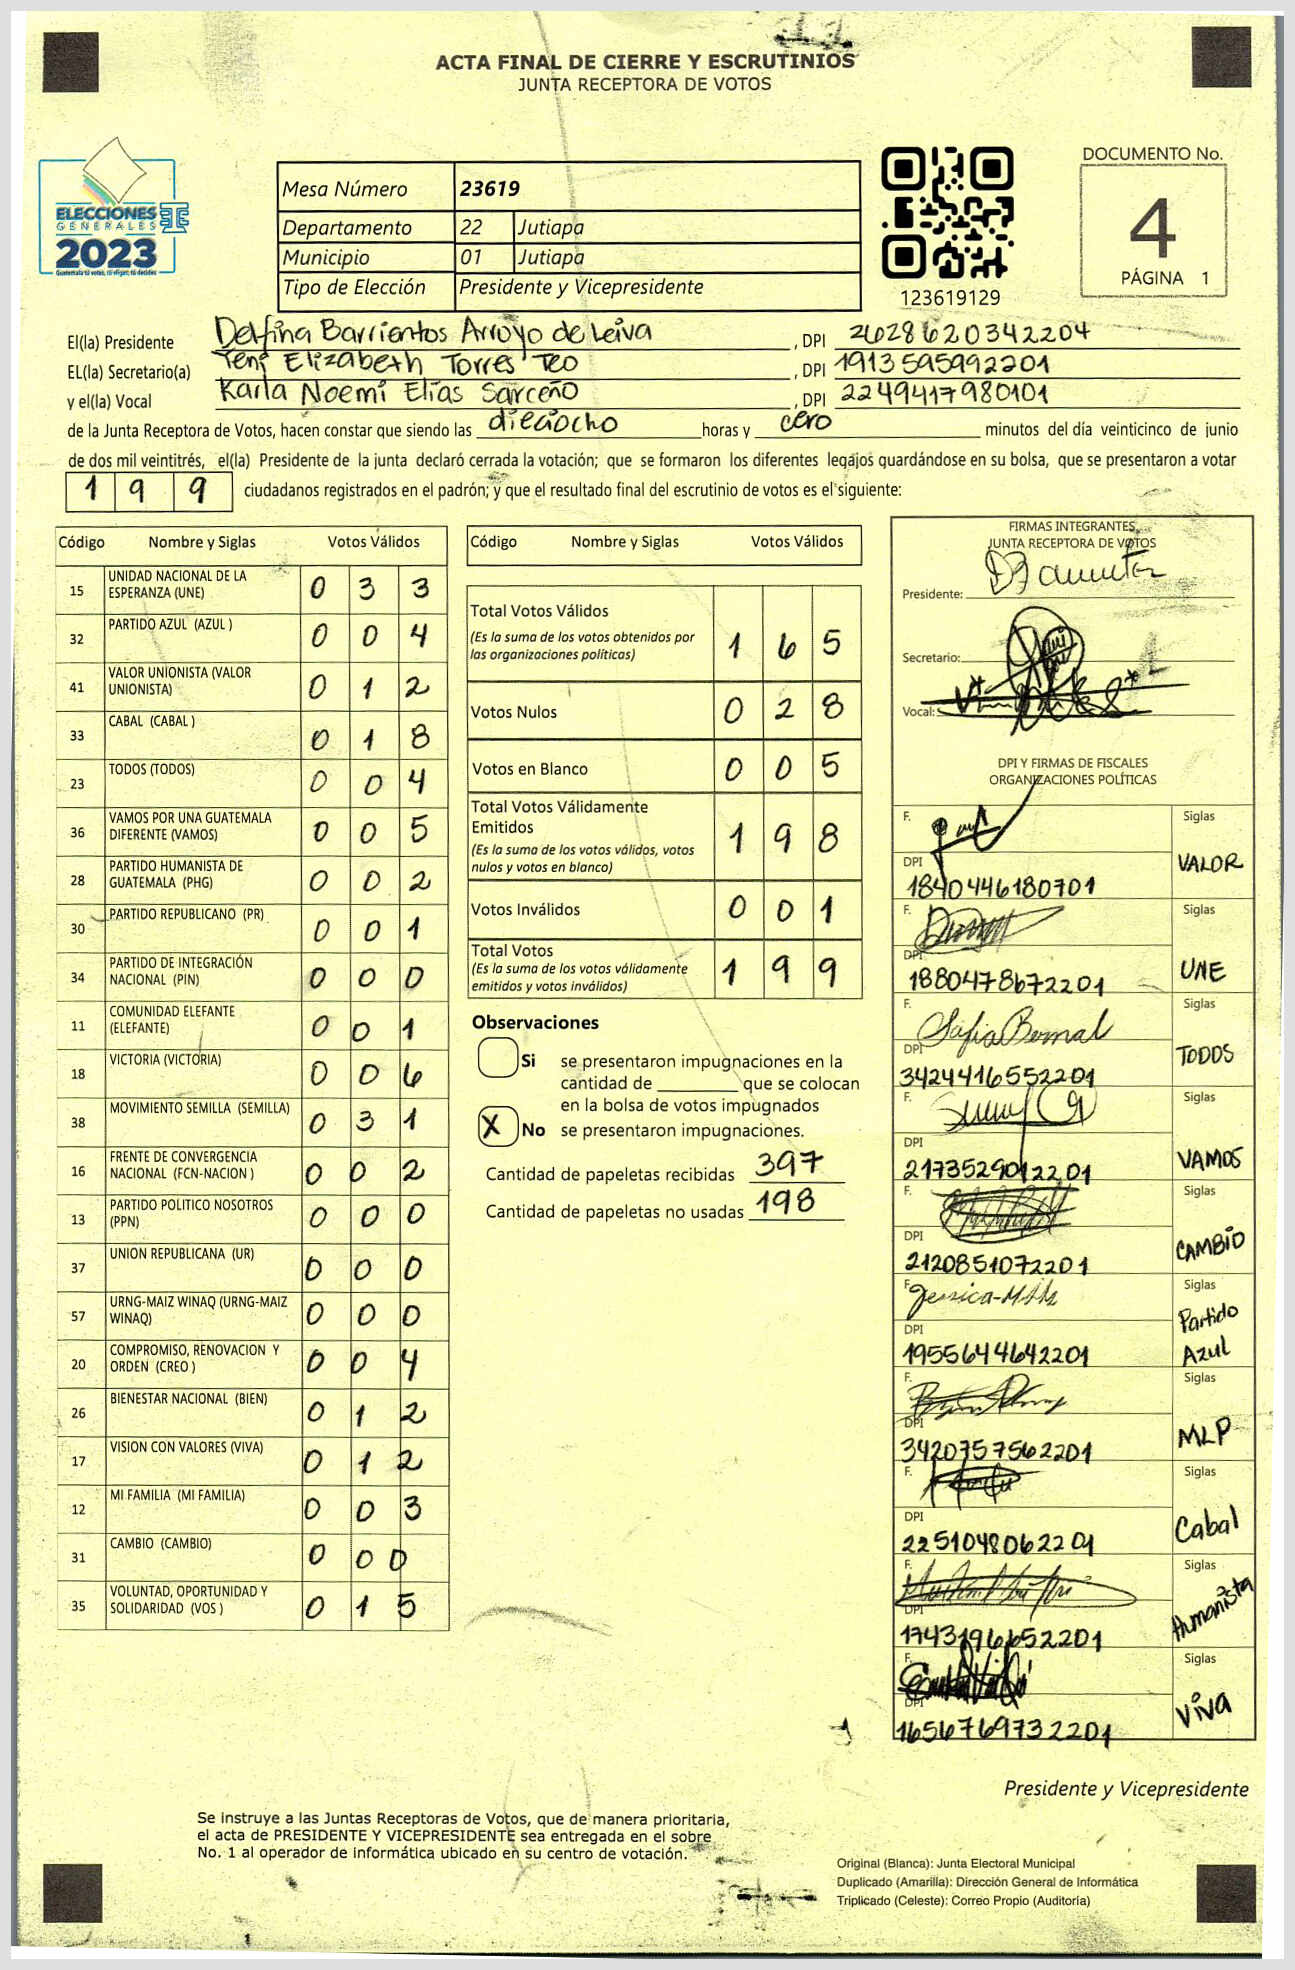 ACTA FINAL DE CIERRE Y ESCRUTINIOS
JUNTA RECEPTORA DE VOTOS
ELECCIONES
GENERALES
2023
Guatemala tú votas, tú eliges, tú decides
Mesa Número 23619
Departamento 22 Jutiapa
Municipio 01 Jutiapa
Tipo de Elección Presidente y Vicepresidente
123619129
DOCUMENTO No.
4
PÁGINA 1
El(la) Presidente Delfina Barrientos Arroyo de Leiva, DPI 2628620342204
EL(la) Secretario(a) Yeni Elizabeth Torres Teo, DPI 1913595992201
y el(la) Vocal Karla Noemi Elías Sarceño, DPI 2249417980101
de la Junta Receptora de Votos, hacen constar que siendo las dieciocho horas y cero minutos del día veinticinco de junio
de dos mil veintitrés, el(la) Presidente de la junta declaró cerrada la votación; que se formaron los diferentes legajos guardándose en su bolsa, que se presentaron a votar
1 9 9 ciudadanos registrados en el padrón; y que el resultado final del escrutinio de votos es el siguiente:
Código Nombre y Siglas Votos Válidos
15 UNIDAD NACIONAL DE LA ESPERANZA (UNE) 0 3 3
32 PARTIDO AZUL (AZUL ) 0 0 4
41 VALOR UNIONISTA (VALOR UNIONISTA) 0 1 2
33 CABAL (CABAL ) 0 1 8
23 TODOS (TODOS) 0 0 4
36 VAMOS POR UNA GUATEMALA DIFERENTE (VAMOS) 0 0 5
28 PARTIDO HUMANISTA DE GUATEMALA (PHG) 0 0 2
30 PARTIDO REPUBLICANO (PR) 0 0 1
34 PARTIDO DE INTEGRACIÓN NACIONAL (PIN) 0 0 0
11 COMUNIDAD ELEFANTE (ELEFANTE) 0 0 1
18 VICTORIA (VICTORIA) 0 0 6
38 MOVIMIENTO SEMILLA (SEMILLA) 0 3 1
16 FRENTE DE CONVERGENCIA NACIONAL (FCN-NACION ) 0 0 2
13 PARTIDO POLITICO NOSOTROS (PPN) 0 0 0
37 UNION REPUBLICANA (UR) 0 0 0
57 URNG-MAIZ WINAQ (URNG-MAIZ WINAQ) 0 0 0
20 COMPROMISO, RENOVACION Y ORDEN (CREO ) 0 0 4
26 BIENESTAR NACIONAL (BIEN) 0 1 2
17 VISION CON VALORES (VIVA) 0 1 2
12 MI FAMILIA (MI FAMILIA) 0 0 3
31 CAMBIO (CAMBIO) 0 0 0
35 VOLUNTAD, OPORTUNIDAD Y SOLIDARIDAD (VOS ) 0 1 5
Código Nombre y Siglas Votos Válidos
Total Votos Válidos 1 6 5
(Es la suma de los votos obtenidos por
las organizaciones políticas)
Votos Nulos 0 2 8
Votos en Blanco 0 0 5
Total Votos Válidamente
Emitidos 1 9 8
(Es la suma de los votos válidos, votos
nulos y votos en blanco)
Votos Inválidos 0 0 1
Total Votos 1 9 9
(Es la suma de los votos válidamente
emitidos y votos inválidos)
Observaciones
Si se presentaron impugnaciones en la
cantidad de ________ que se colocan
en la bolsa de votos impugnados
X No se presentaron impugnaciones.
Cantidad de papeletas recibidas 397
Cantidad de papeletas no usadas 198
FIRMAS INTEGRANTES,
JUNTA RECEPTORA DE VOTOS
Presidente:
Secretario:
Vocal:
DPI Y FIRMAS DE FISCALES
ORGANIZACIONES POLÍTICAS
F. Siglas
DPI VALOR
1840446180701
F. Siglas
DPI UNE
1880478672201
F. Sofia Bernal Siglas
DPI TODOS
3424416552201
F. Siglas
DPI VAMOS
2173529012201
F. Siglas
DPI CAMBIO
2120851072201
F. Jessica Siglas
DPI Partido Azul
1955644642201
F. Siglas
DPI MLP
3420757562201
F. Siglas
DPI Cabal
2251048062201
F. Siglas
DPI Humanista
1743196652201
F. Siglas
DPI Viva
1656769732201
Presidente y Vicepresidente
Se instruye a las Juntas Receptoras de Votos, que de manera prioritaria,
el acta de PRESIDENTE Y VICEPRESIDENTE sea entregada en el sobre
No. 1 al operador de informática ubicado en su centro de votación.
Original (Blanca): Junta Electoral Municipal
Duplicado (Amarilla): Dirección General de Informática
Triplicado (Celeste): Correo Propio (Auditoría)